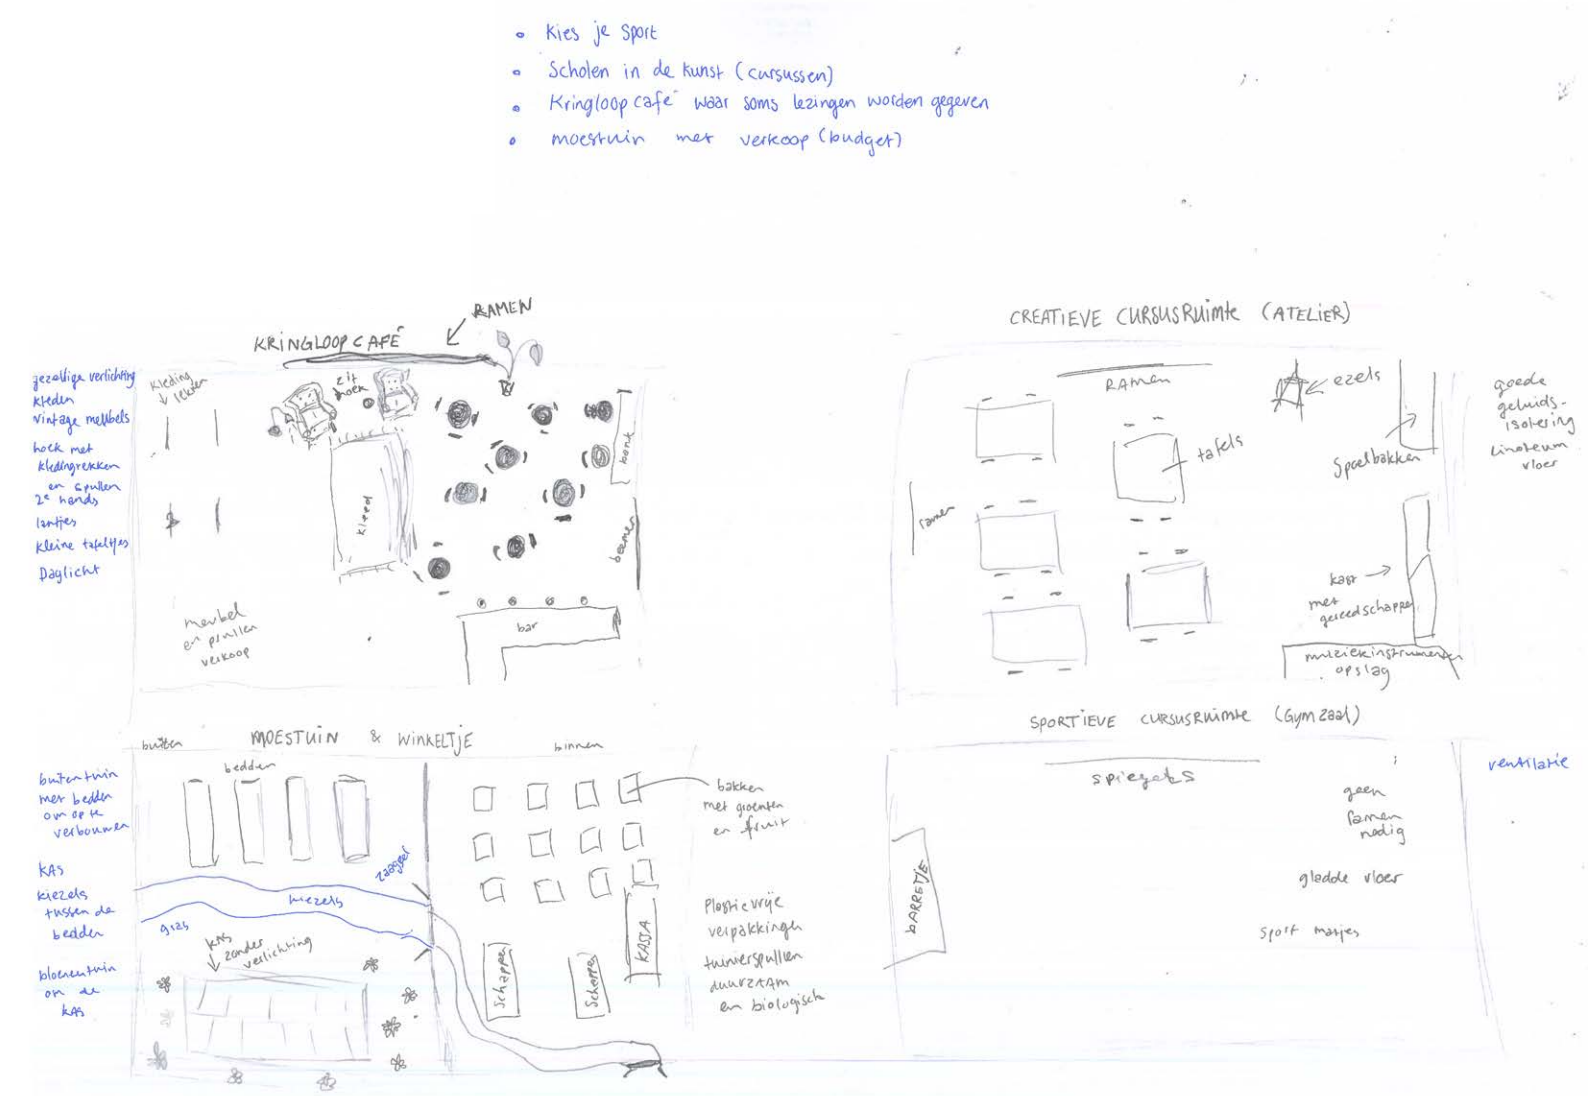 Kies je sport
Scholen in de Kunst (cursussen)
Kringloop café waar soms lezingen worden gegeven
moestuin met verkoop (budget)
RAMEN
KRINGLOOP CAFÉ
gezellige verlichting
kleden
vintage meubels
hoek met
kledingrekken
en spullen
2e hands
lantjes
kleine tafeltjes
Daglicht
Kleding
rekken
zit
hoek
kleed
bank
beamer
bar
meubel
en prullen
verkoop
CREATIEVE CURSUSRUIMTE (ATELIER)
RAMEN
ramen
tafels
ezels
Spoelbakken
kast
met
gereedschappen
muziekinstrumenten
opslag
goede
geluids-
isolering
Linoleum
vloer
MOESTUIN & WINKELTJE
buiten
bedden
binnen
buitentuin
met bedden
om op te
verbouwen
KAS
kiezels
tussen de
bedden
bloementuin
om de
KAS
kiezels
gras
KAS
zonder
verlichting
bakken
met groenten
en fruit
KASSA
Schappen
Schappen
Plasticvrije
verpakkingen
tuinierspullen
duurzaam
en biologisch
SPORTIEVE CURSUSRUIMTE (Gymzaal)
spiegels
BARRETJE
geen
ramen
nodig
gladde vloer
sport matjes
ventilatie